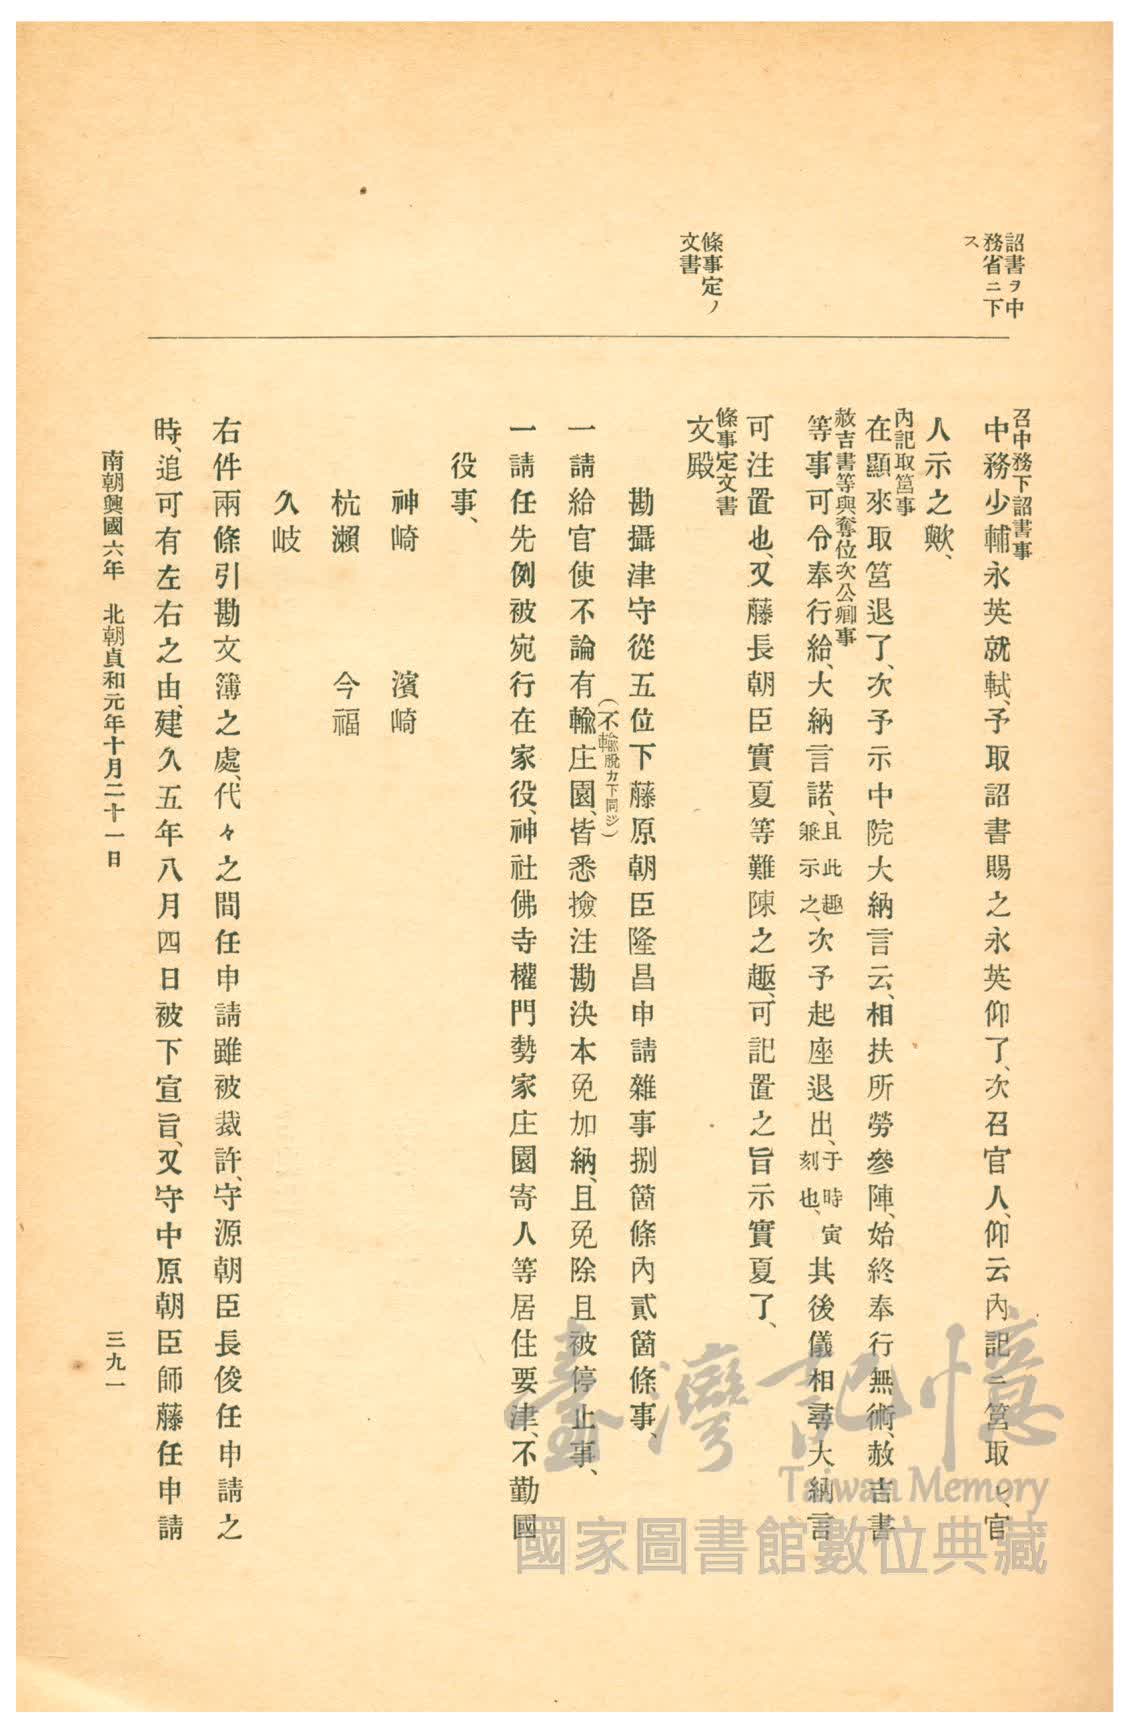 詔書ヲ中
務省ニ下
ス
條事定ノ
文書
召中務下詔書事
中務少輔永英就軾、予取詔書賜之永英仰了、次召官人、仰云內記ニ筥取レ、官
人示之歟、
內記取筥事
在顯來取筥退了、次予示中院大納言云、相扶所勞參陣、始終奉行無術、赦吉書
赦吉書等與奪位次公卿事
等事可令奉行給、大納言諾、且此趣兼示之、次予起座退出、于時寅刻也、其後儀相尋大納言
可注置也、又藤長朝臣實夏等難陳之趣、可記置之旨示實夏了、
條事定文書
文殿
勘攝津守從五位下藤原朝臣隆昌申請雜事捌箇條內貳箇條事、
一請給官使不論有輸庄園、皆悉撿注勘決本免加納、且免除且被停止事、
(不輸脫カ下同ジ)
一請任先例被宛行在家役、神社佛寺權門勢家庄園寄人等居住要津、不勤國
役事、
神崎 濱崎
杭瀨 今福
久岐
右件兩條引勘文簿之處、代々之間任申請雖被裁許、守源朝臣長俊任申請之
時、追可有左右之由、建久五年八月四日被下宣旨、又守中原朝臣師藤任申請
南朝興國六年 北朝貞和元年十月二十一日
三九一
臺灣記憶
Taiwan Memory
國家圖書館數位典藏